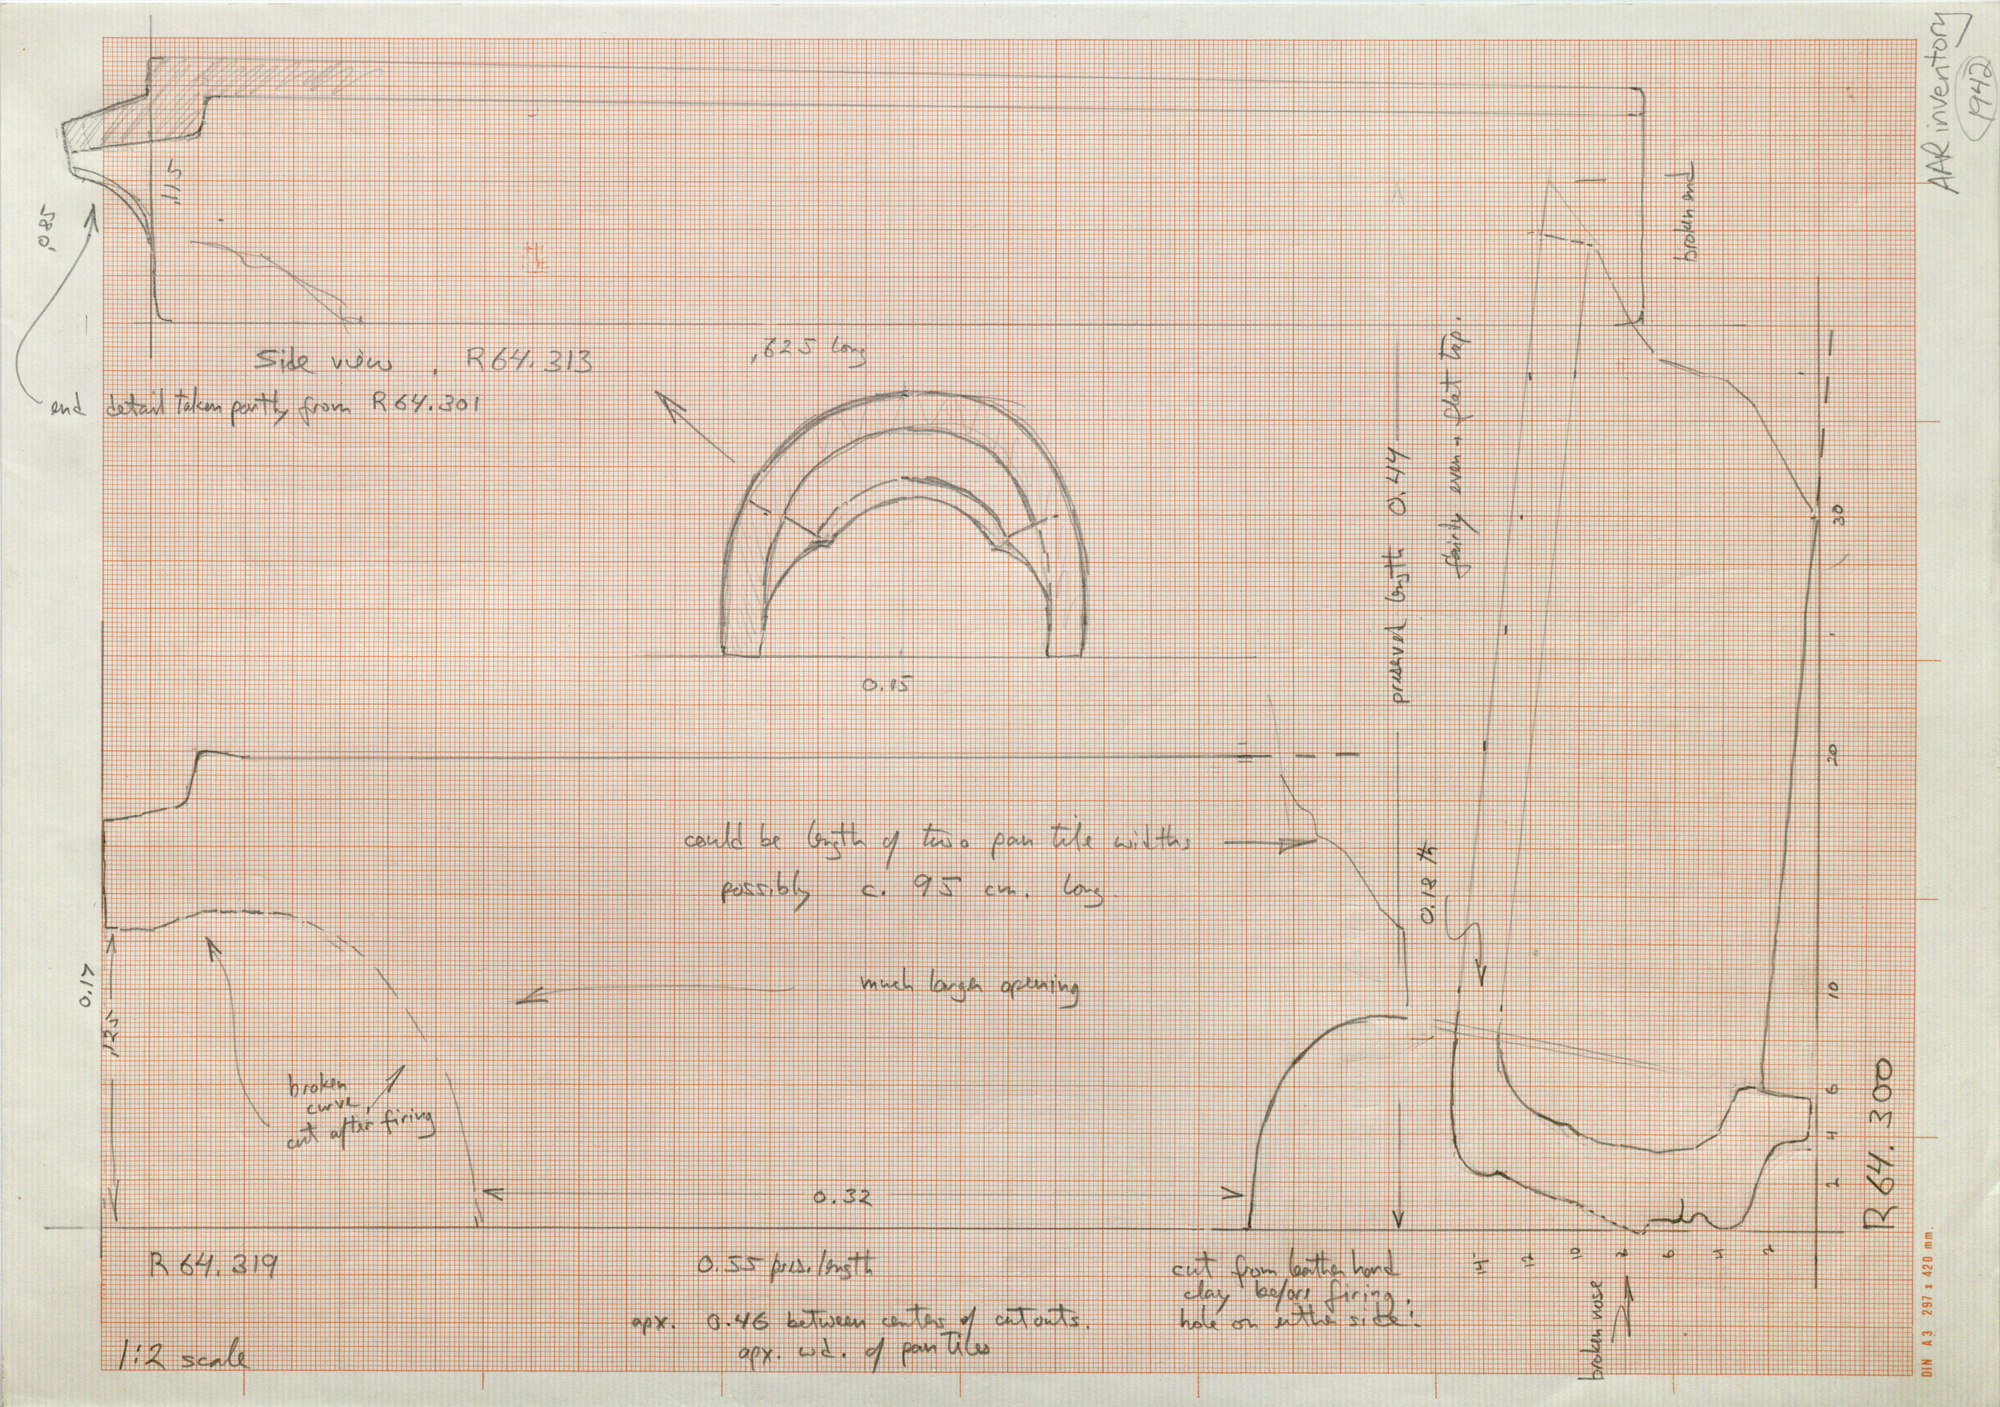 AAR inventory
1942
.115
.085
broken end
Side view . R64.313
,625 long
end detail taken partly from R64.301
fairly even + flat top.
preserved length 0.44
30
0.15
20
could be length of two pan tile widths
possibly c. 95 cm. long
0.18 th
much larger opening
10
0.17
.125
broken
curve,
cut after firing
6
4
2
R 64.300
0.32
R 64.319
0.55 pres. length
cut from leather hard
clay before firing.
hole on either side.
14
12
10
8
6
4
2
apx. 0.46 between centers of cutouts.
apx. wd. of pan tiles
broken nose
1:2 scale
DIN A3 297 x 420 mm.